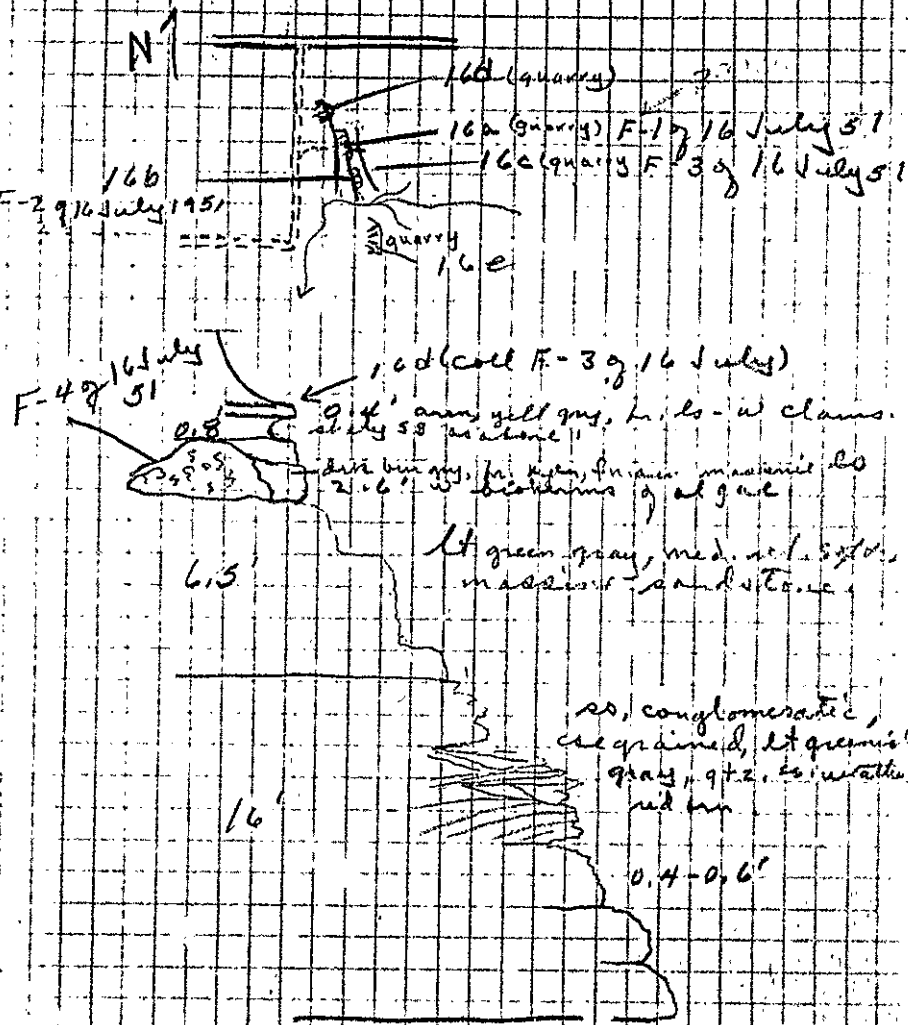 N
16d (quarry)
16a (quarry) F-1 of 16 July 51
16c (quarry F-3 of 16 July 51
16b
F-2 of 16 July 1951
quarry
16e
16d (coll F-3 of 16 July)
F-4 of 16 July
51
0.4' yell gray, ls - w clams
0.8'
ss as above
massive ls
2.6' w bioherms of algae
6.5'
lt green gray, med.
massive sandstone
ss, conglomeratic,
cse grained, lt greenish
gray, qtz,
red brn
16'
0.4-0.6'